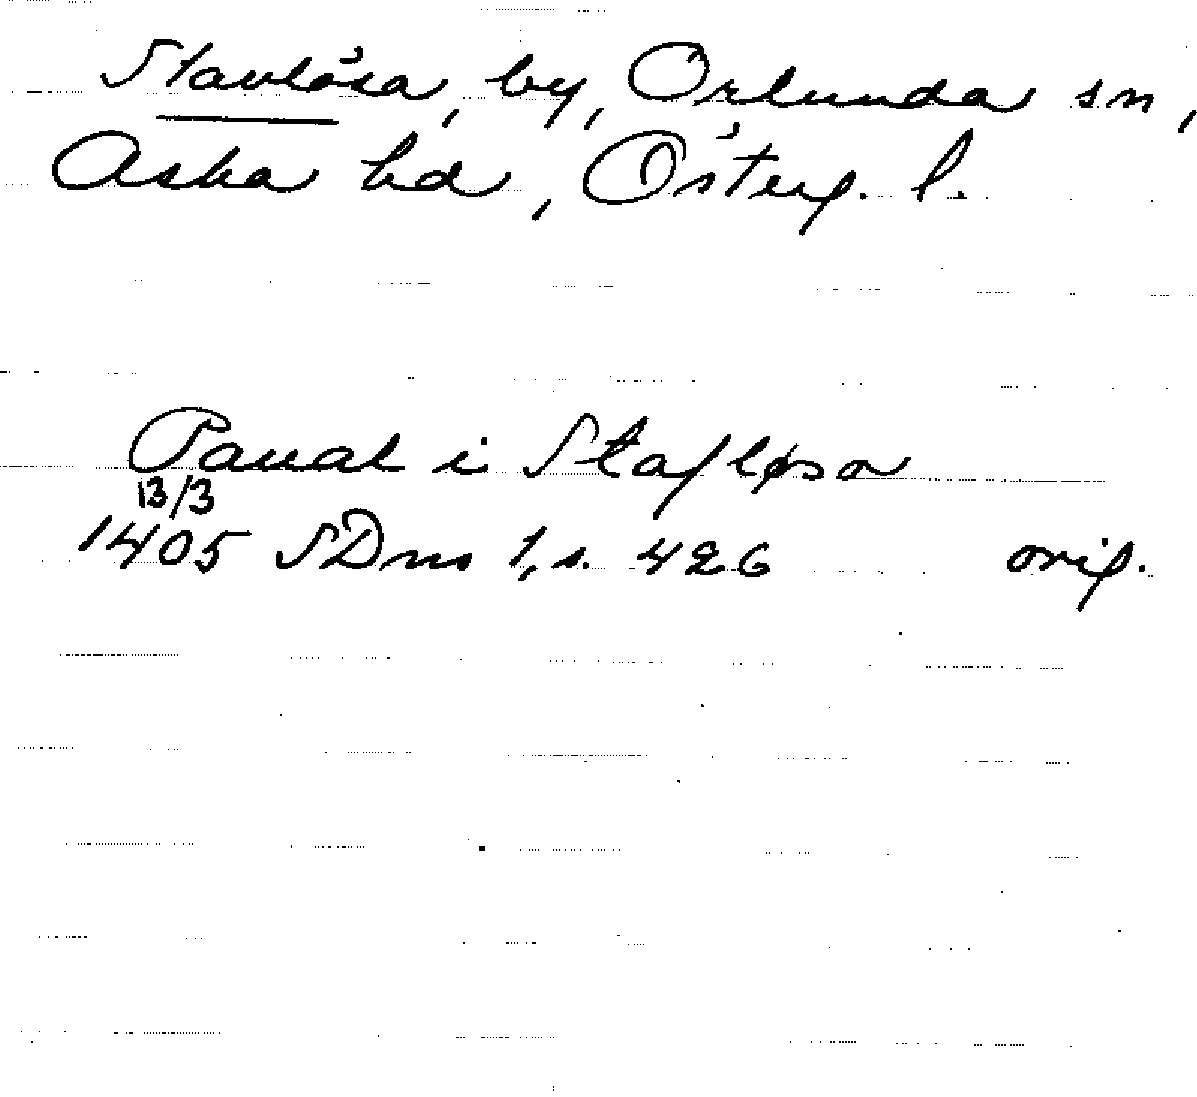 Stavlösa, by, Orlunda sn,
Aska hd, Österg. l.
Pawal i Stafløsa
13/3
1405 SDns 1, s. 426 orig.